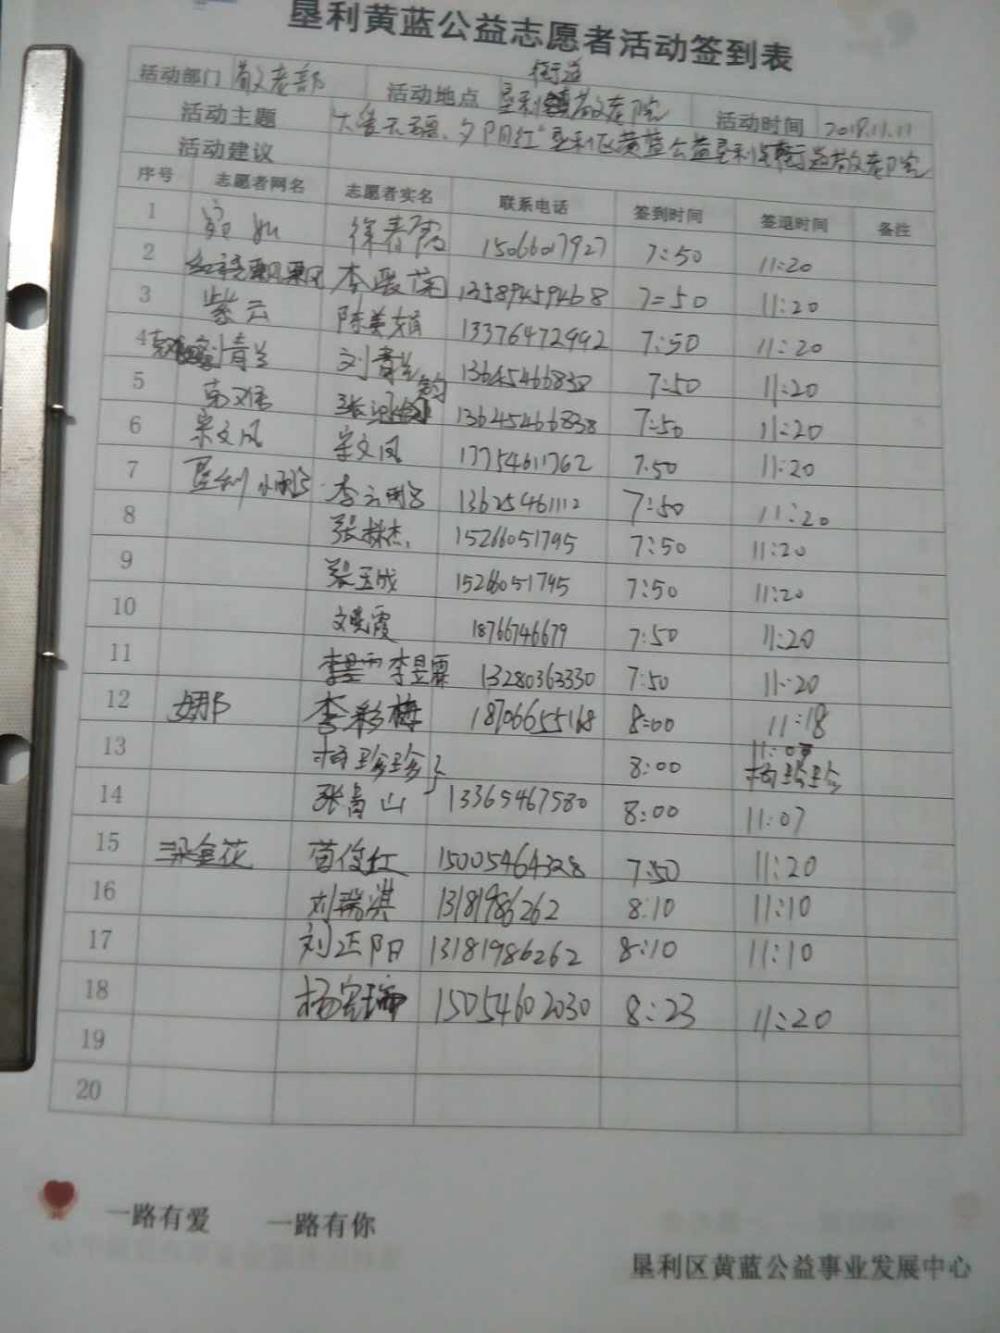 垦利黄蓝公益志愿者活动签到表
活动部门 敬老部 活动地点 垦利街道敬老院 活动时间 2018.11.11
活动主题 大爱无疆、夕阳红"垦利区黄蓝公益垦利街道敬老院
活动建议
序号 志愿者网名 志愿者实名 联系电话 签到时间 签退时间 备注
1 徐春霞 15066017927 7:50 11:20
2 李 13589459468 7:50 11:20
3 紫云 陈美娟 13376472992 7:50 11:20
4 刘青兰 刘青兰 13645466838 7:50 11:20
5 张 13645466838 7:50 11:20
6 宋文凤 宋文凤 17754611762 7:50 11:20
7 垦利小鹏 李云鹏 13625461112 7:50 11:20
8 张林杰 15266051795 7:50 11:20
9 张玉成 15266051795 7:50 11:20
10 文晓霞 18766746679 7:50 11:20
11 李昱霖 13280363330 7:50 11:20
12 娜 李彩梅 18706655168 8:00 11:18
13 杨珍珍 8:00 11:07 杨珍珍
14 张青山 13365467580 8:00 11:07
15 三朵金花 苗俊红 15005464328 7:50 11:20
16 刘瑞淇 13181986262 8:10 11:10
17 刘正阳 13181986262 8:10 11:10
18 杨 15054602030 8:23 11:20
19
20
一路有爱 一路有你
垦利区黄蓝公益事业发展中心